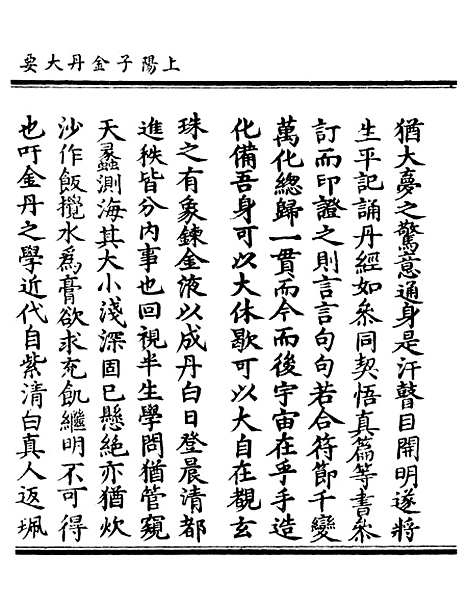 上陽子金丹大要
猶大夢之驚意通身是汗瞽目開明遂將
生平記誦丹經如參同契悟真篇等書參
訂而印證之則言言句句若合符節千變
萬化總歸一貫而今而後宇宙在乎手造
化備吾身可以大休歇可以大自在觀玄
珠之有象鍊金液以成丹白日登晨清都
進秩皆分内事也回視半生學問猶管窺
天蠡測海其大小淺深固已懸絕亦猶炊
沙作飯攪水為膏欲求充飢繼明不可得
也吁金丹之學近代自紫清白真人返珮